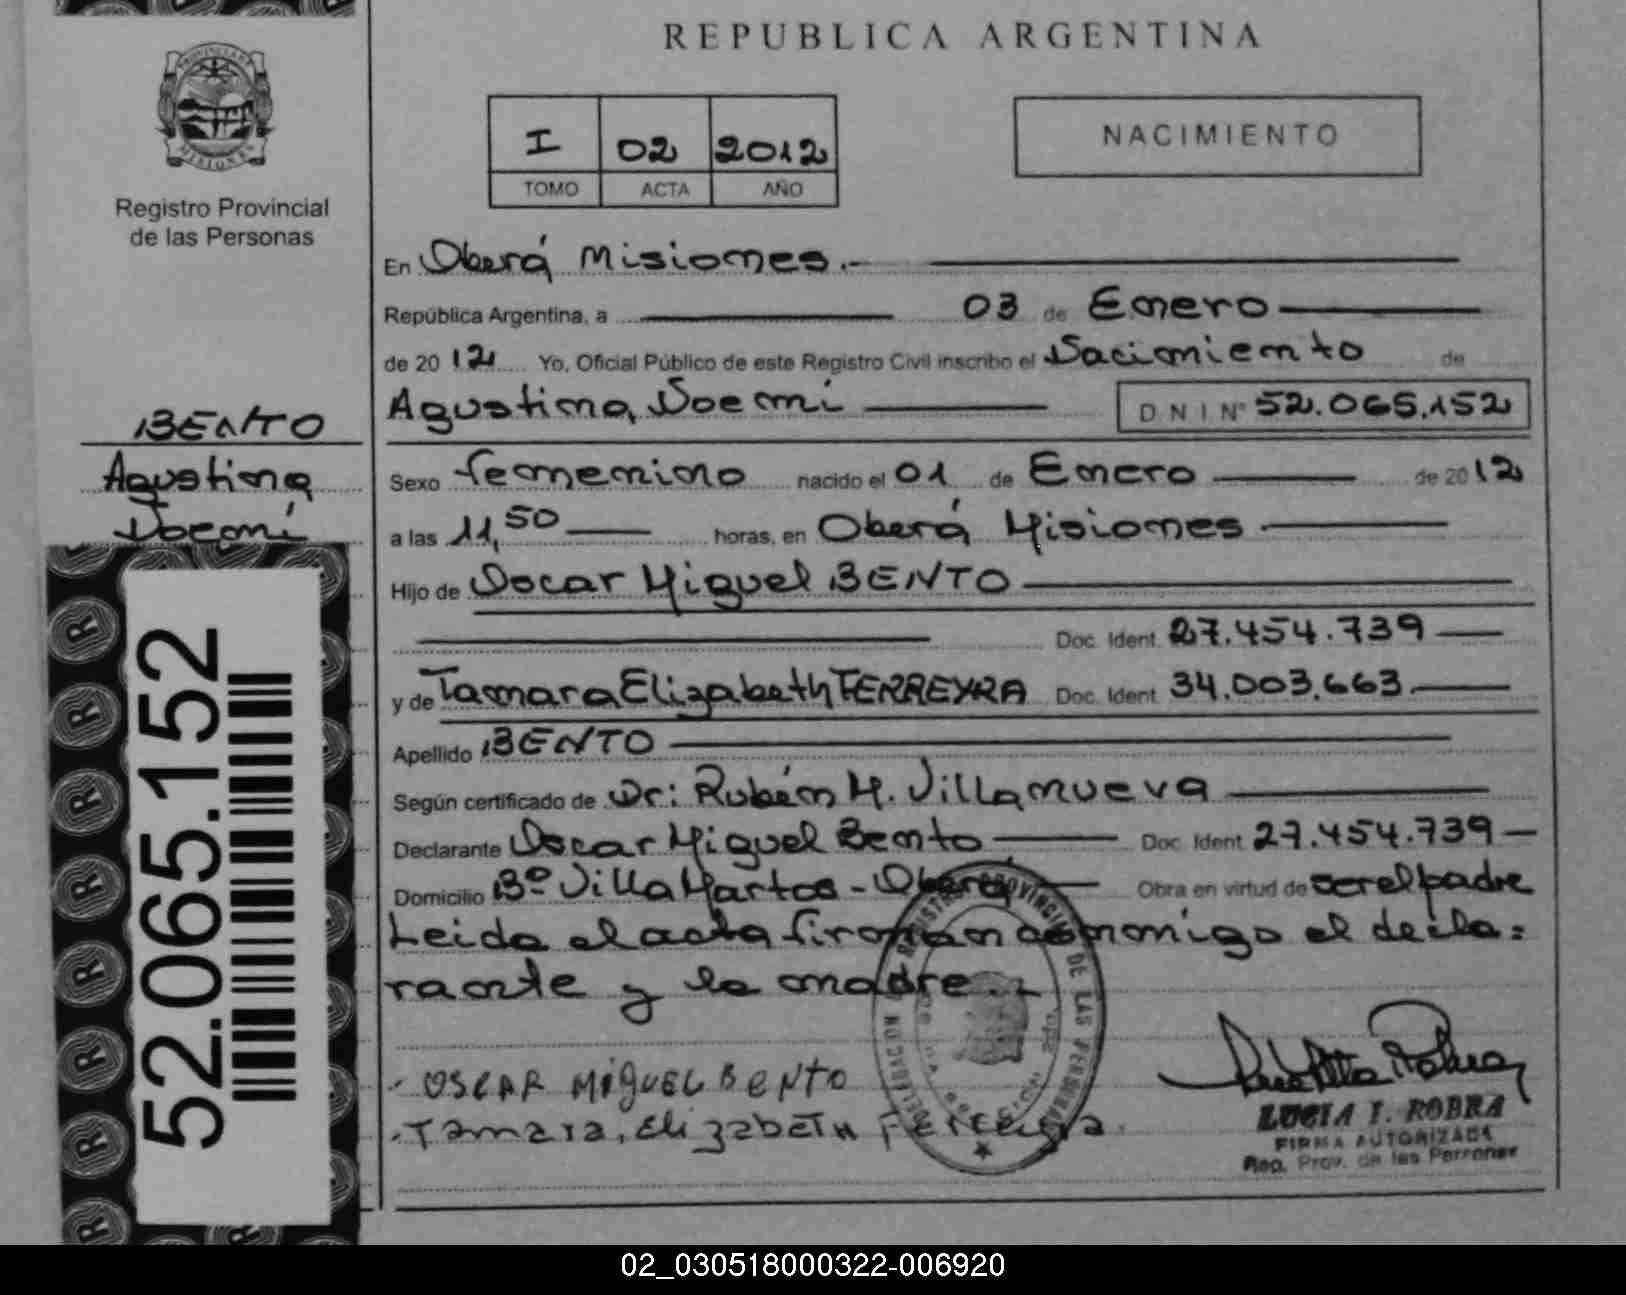 REPUBLICA ARGENTINA
PROVINCIA DE
MISIONES
Registro Provincial
de las Personas
I 02 2012
TOMO ACTA AÑO
NACIMIENTO
En Oberá Misiones.-
República Argentina, a 03 de Enero
de 2012 Yo, Oficial Público de este Registro Civil inscribo el Nacimiento de
Agustina Noemí DNI Nº 52.065.152
BENTO
Agustina
Noemí
Sexo femenino nacido el 01 de Enero de 2012
a las 11,50 horas, en Oberá Misiones
Hijo de Oscar Miguel BENTO
Doc. Ident. 27.454.739
y de Tamara Elizabeth FERREYRA Doc. Ident. 34.003.663.
Apellido BENTO
Según certificado de Dr: Rubén M. Villanueva
Declarante Oscar Miguel Bento Doc. Ident. 27.454.739
Domicilio Bº Villa Martos - Oberá Obra en virtud de ser el padre
Leida el acta firman conmigo el decla=
rante y la madre.-
52.065.152
OSCAR MIGUEL BENTO
Tamara, Elizabeth Ferreyra.
REGISTRO PROVINCIAL DE LAS PERSONAS
LUCIA I. ROBRA
FIRMA AUTORIZADA
Reg. Prov. de las Personas
02_030518000322-006920